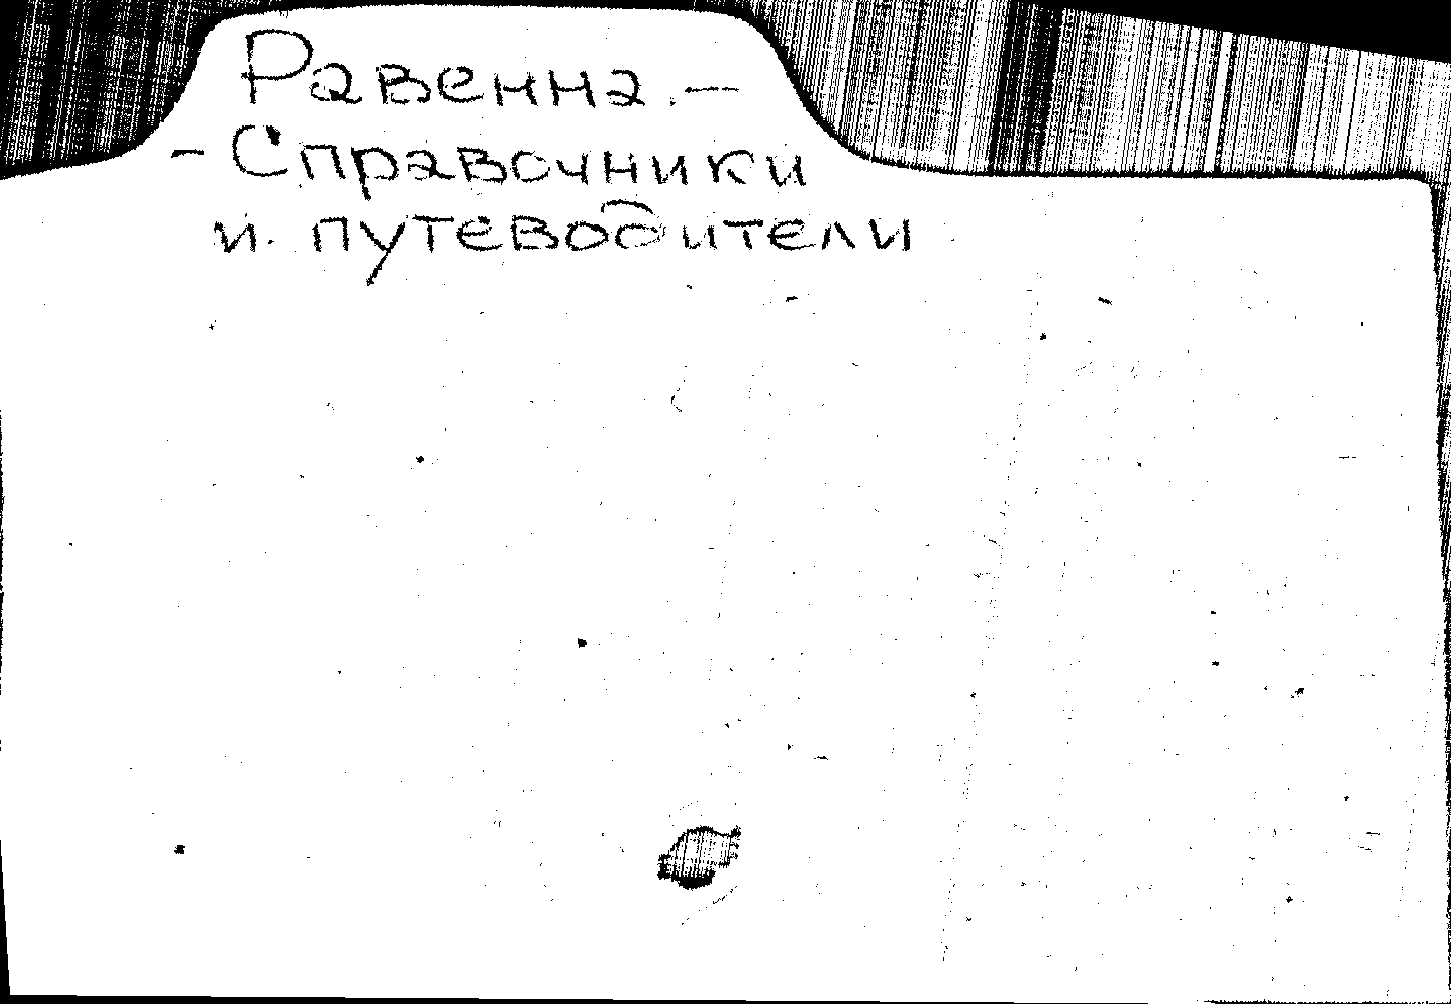 Равенна. —
- Справочники
и путеводители